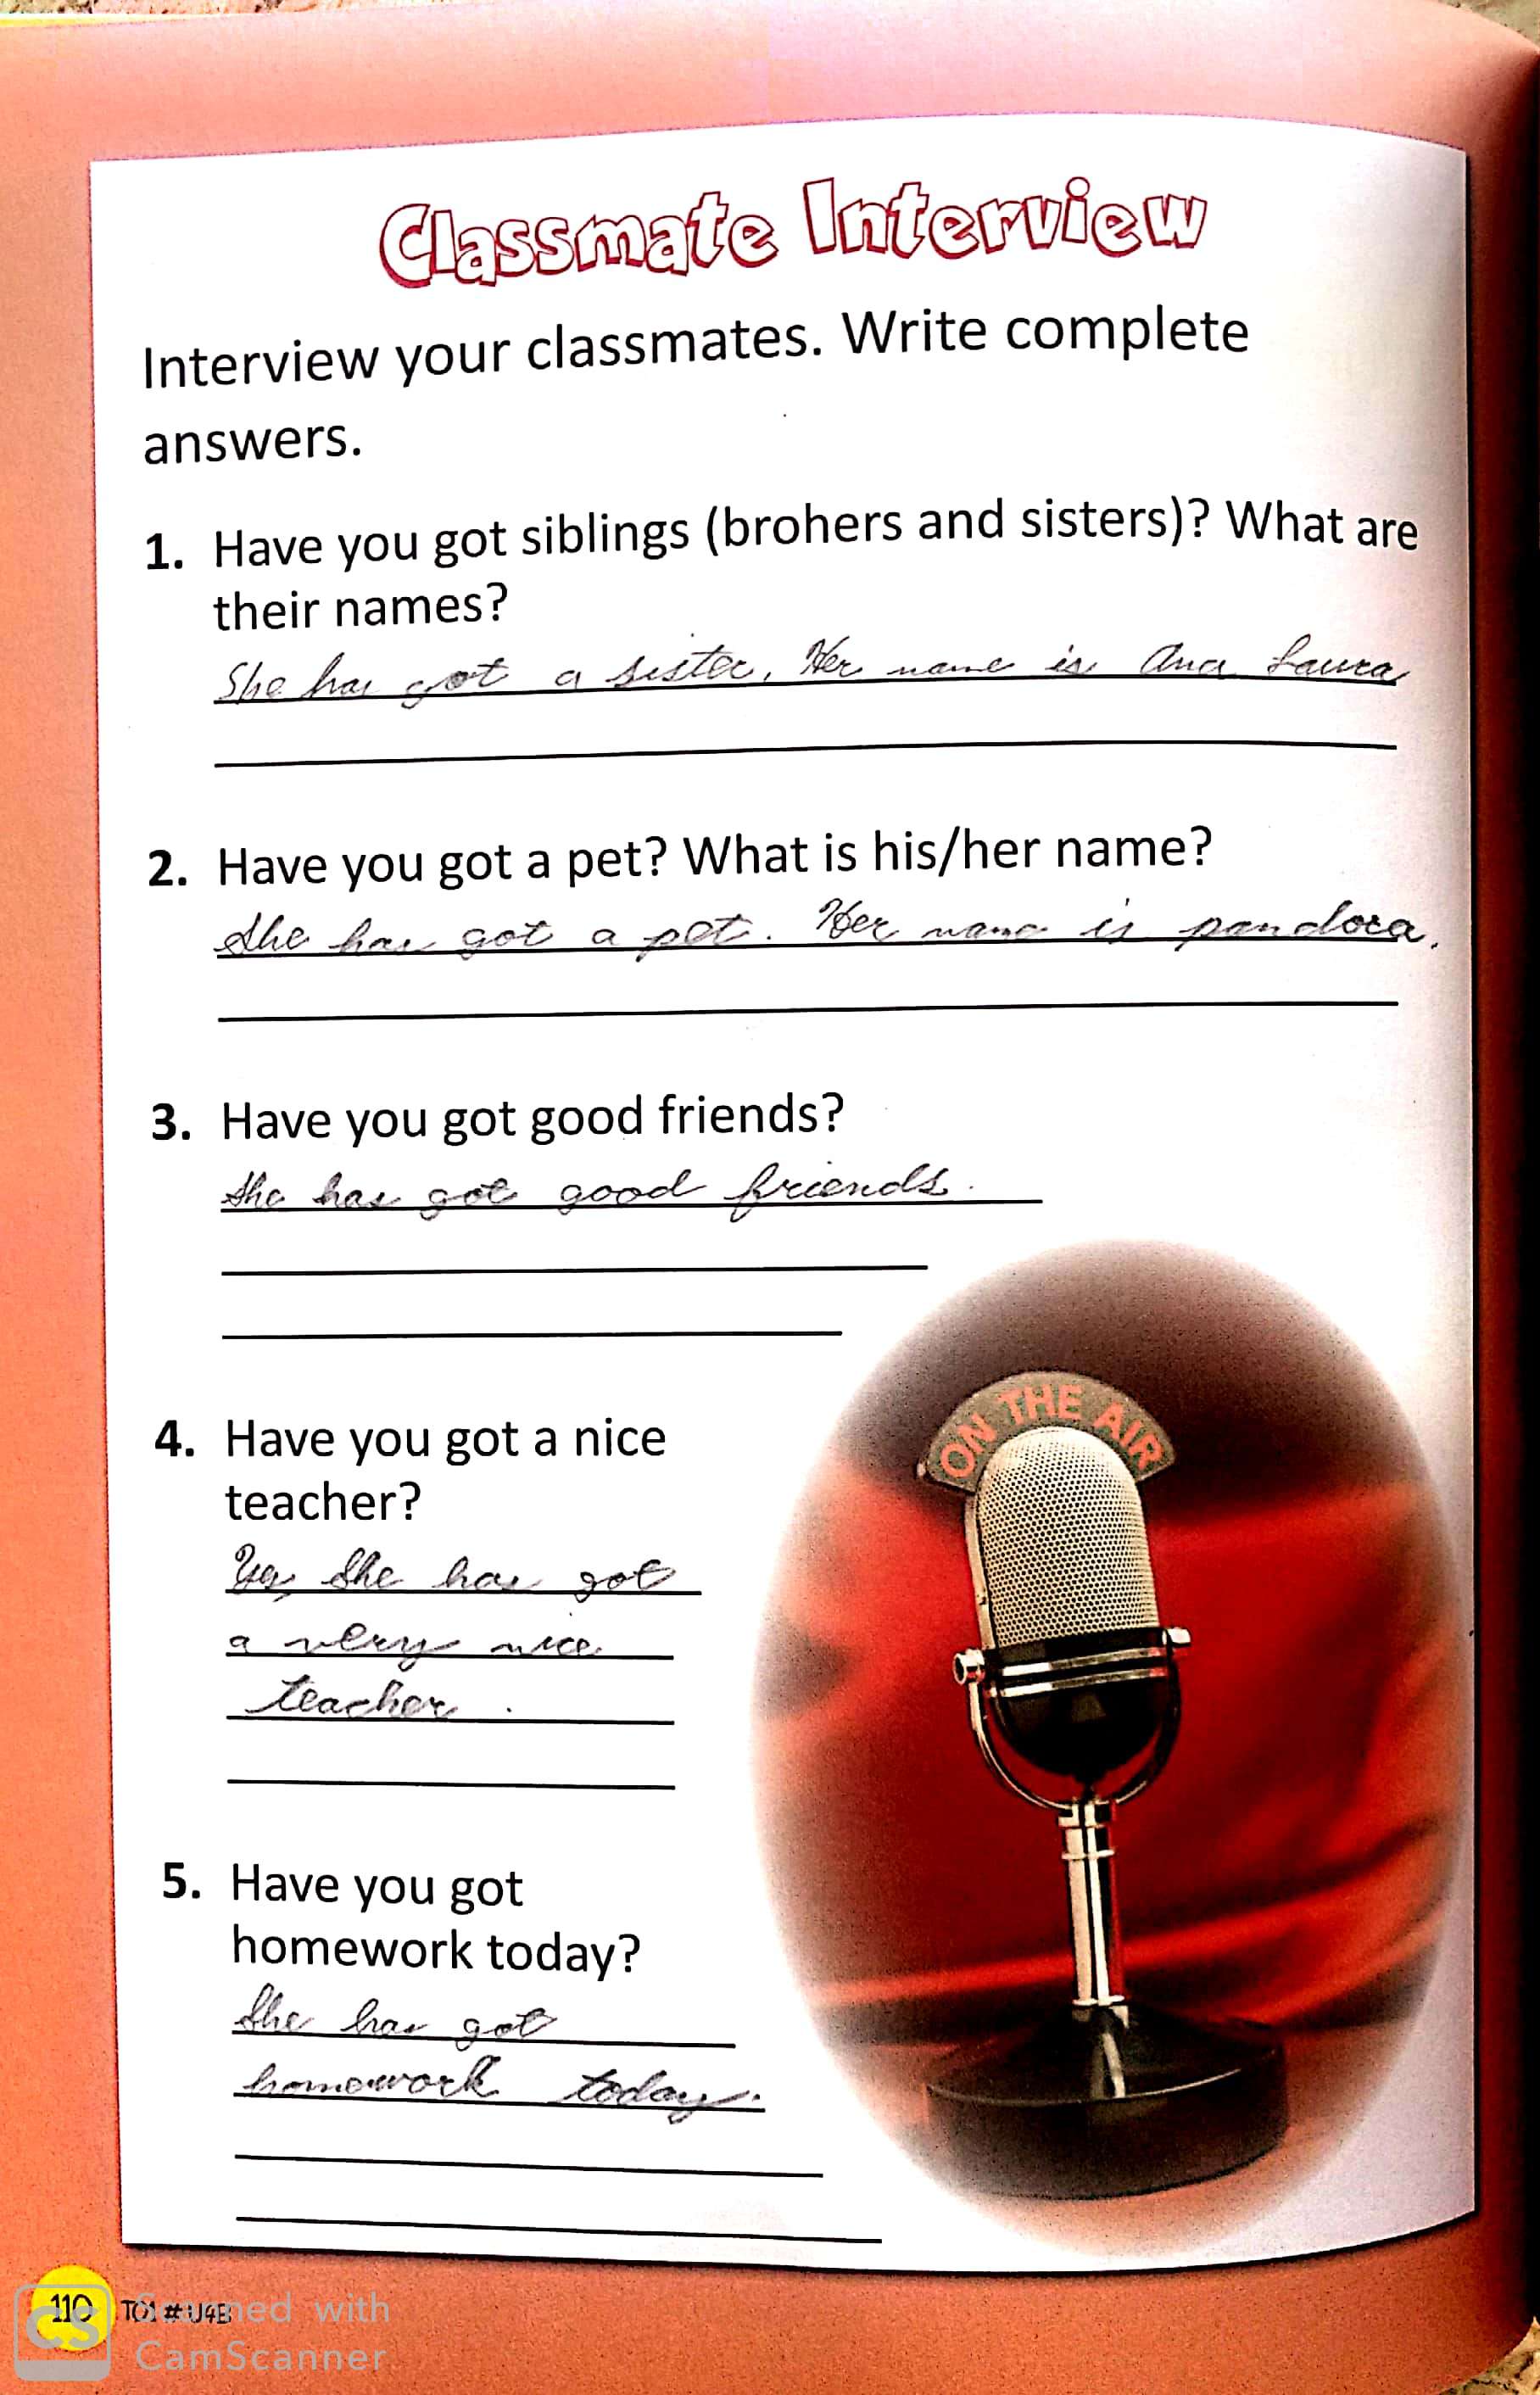 Classmate Interview
Interview your classmates. Write complete
answers.
1. Have you got siblings (brohers and sisters)? What are
their names?
She has got a sister, Her name is Ana Laura
2. Have you got a pet? What is his/her name?
She has got a pet. Her name is pandora.
3. Have you got good friends?
She has got good friends.
4. Have you got a nice
teacher?
Yes, She has got
a very nice
teacher.
5. Have you got
homework today?
She has got
homework today.
ON THE AIR
110 TO1 # U4B
CS Scanned with
CamScanner